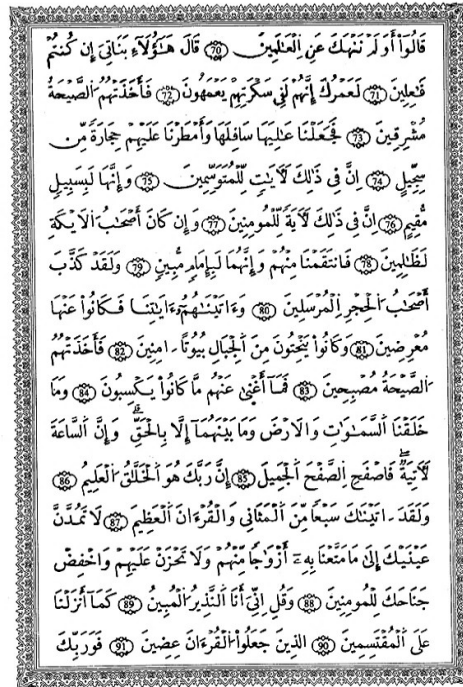 قَالُوٓاْ أَوَلَمْ نَنْهَكَ عَنِ الْعَالَمِينَ (70) قَالَ هَٰٓؤُلَآءِ بَنَاتِيَ إِن كُنتُمْ
فَاعِلِينَ (71) لَعَمْرُكَ إِنَّهُمْ لَفِي سَكْرَتِهِمْ يَعْمَهُونَ (72) فَأَخَذَتْهُمُ الصَّيْحَةُ
مُشْرِقِينَ (73) فَجَعَلْنَا عَالِيَهَا سَافِلَهَا وَأَمْطَرْنَا عَلَيْهِمْ حِجَارَةً مِّن
سِجِّيلٍ (74) اِنَّ فِي ذَٰلِكَ لَأَيَٰتٍ لِّلْمُتَوَسِّمِينَ (75) وَإِنَّهَا لَبِسَبِيلٍ
مُّقِيمٍ (76) اِنَّ فِي ذَٰلِكَ لَأَيَةً لِّلْمُومِنِينَ (77) وَإِن كَانَ أَصْحَٰبُ الَايْكَةِ
لَظَٰلِمِينَ (78) فَانتَقَمْنَا مِنْهُمْ وَإِنَّهُمَا لَبِإِمَامٍ مُّبِينٍ (79) وَلَقَدْ كَذَّبَ
أَصْحَٰبُ الْحِجْرِ الْمُرْسَلِينَ (80) وَءَاتَيْنَٰهُمُۥٓ ءَايَٰتِنَا فَكَانُواْ عَنْهَا
مُعْرِضِينَ (81) وَكَانُواْ يَنْحِتُونَ مِنَ الْجِبَالِ بُيُوتًا ـ امِنِينَ (82) فَأَخَذَتْهُمُ
الصَّيْحَةُ مُصْبِحِينَ (83) فَمَآ أَغْنَىٰ عَنْهُم مَّا كَانُواْ يَكْسِبُونَ (84) وَمَا
خَلَقْنَا السَّمَٰوَٰتِ وَالَارْضَ وَمَا بَيْنَهُمَآ إِلَّا بِالْحَقِّ وَإِنَّ السَّاعَةَ
لَأَتِيَةٌ فَاصْفَحِ الصَّفْحَ الْجَمِيلَ (85) إِنَّ رَبَّكَ هُوَ الْخَلَّٰقُ الْعَلِيمُ (86)
وَلَقَدَ ـ اتَيْنَٰكَ سَبْعًا مِّنَ الْمَثَانِي وَالْقُرْءَانَ الْعَظِيمَ (87) لَا تَمُدَّنَّ
عَيْنَيْكَ إِلَىٰ مَا مَتَّعْنَا بِهِۦٓ أَزْوَٰجًا مِّنْهُمْ وَلَا تَحْزَنْ عَلَيْهِمْ وَاخْفِضْ
جَنَاحَكَ لِلْمُومِنِينَ (88) وَقُلِ اِنِّيَ أَنَا النَّذِيرُ الْمُبِينُ (89) كَمَآ أَنزَلْنَا
عَلَى الْمُقْتَسِمِينَ (90) الَّذِينَ جَعَلُواْ الْقُرْءَانَ عِضِينَ (91) فَوَرَبِّكَ